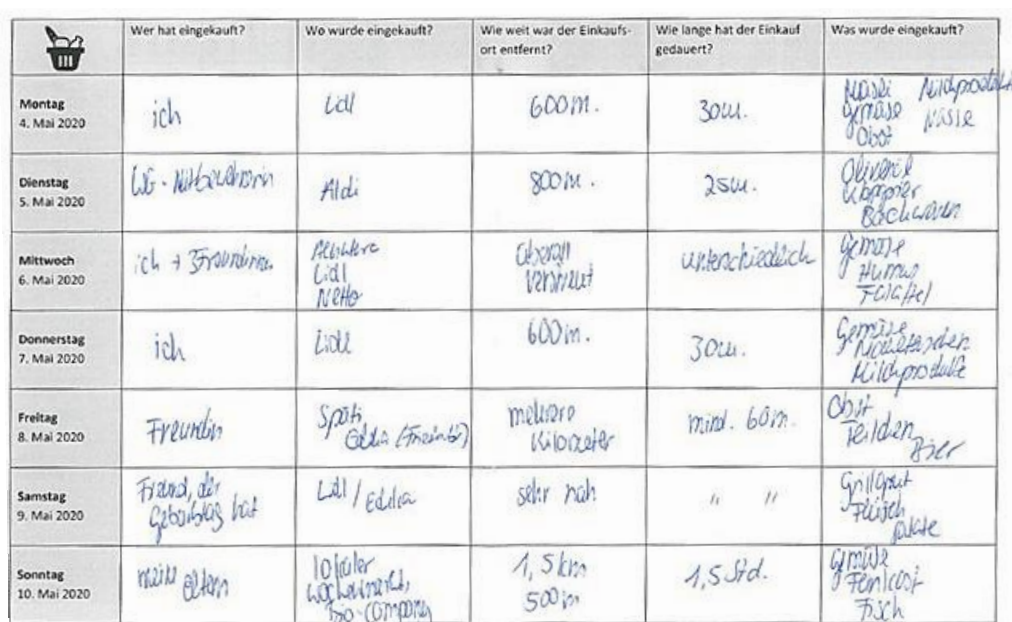 Wer hat eingekauft?
Wo wurde eingekauft?
Wie weit war der Einkaufs-
ort entfernt?
Wie lange hat der Einkauf
gedauert?
Was wurde eingekauft?
Montag
4. Mai 2020
ich
Lidl
600m.
30m.
Müsli Milchprodukte
Gemüse Nüsse
Obst
Dienstag
5. Mai 2020
WG-Mitbewohnerin
Aldi
800m.
25m.
Olivenöl
Klopapier
Backwaren
Mittwoch
6. Mai 2020
ich + 3 Freundinnen
Lidl
Netto
überall
verstreut
unterschiedlich
Gemüse
Humus
Falaffel
Donnerstag
7. Mai 2020
ich
Lidl
600m.
30m.
Gemüse
Milchprodukte
Freitag
8. Mai 2020
Freundin
Späti
Edeka
mehrere
Kilometer
mind. 60m.
Obst
Teilchen
Bier
Samstag
9. Mai 2020
Freund, der
Geburtstag hat
Lidl / Edeka
sehr nah
" "
Grillgut
Fleisch
Salate
Sonntag
10. Mai 2020
meine Eltern
lokaler
Wochenmarkt,
Bio-Company
1,5 km
500m
1,5 Std.
Gemüse
Feinkost
Fisch